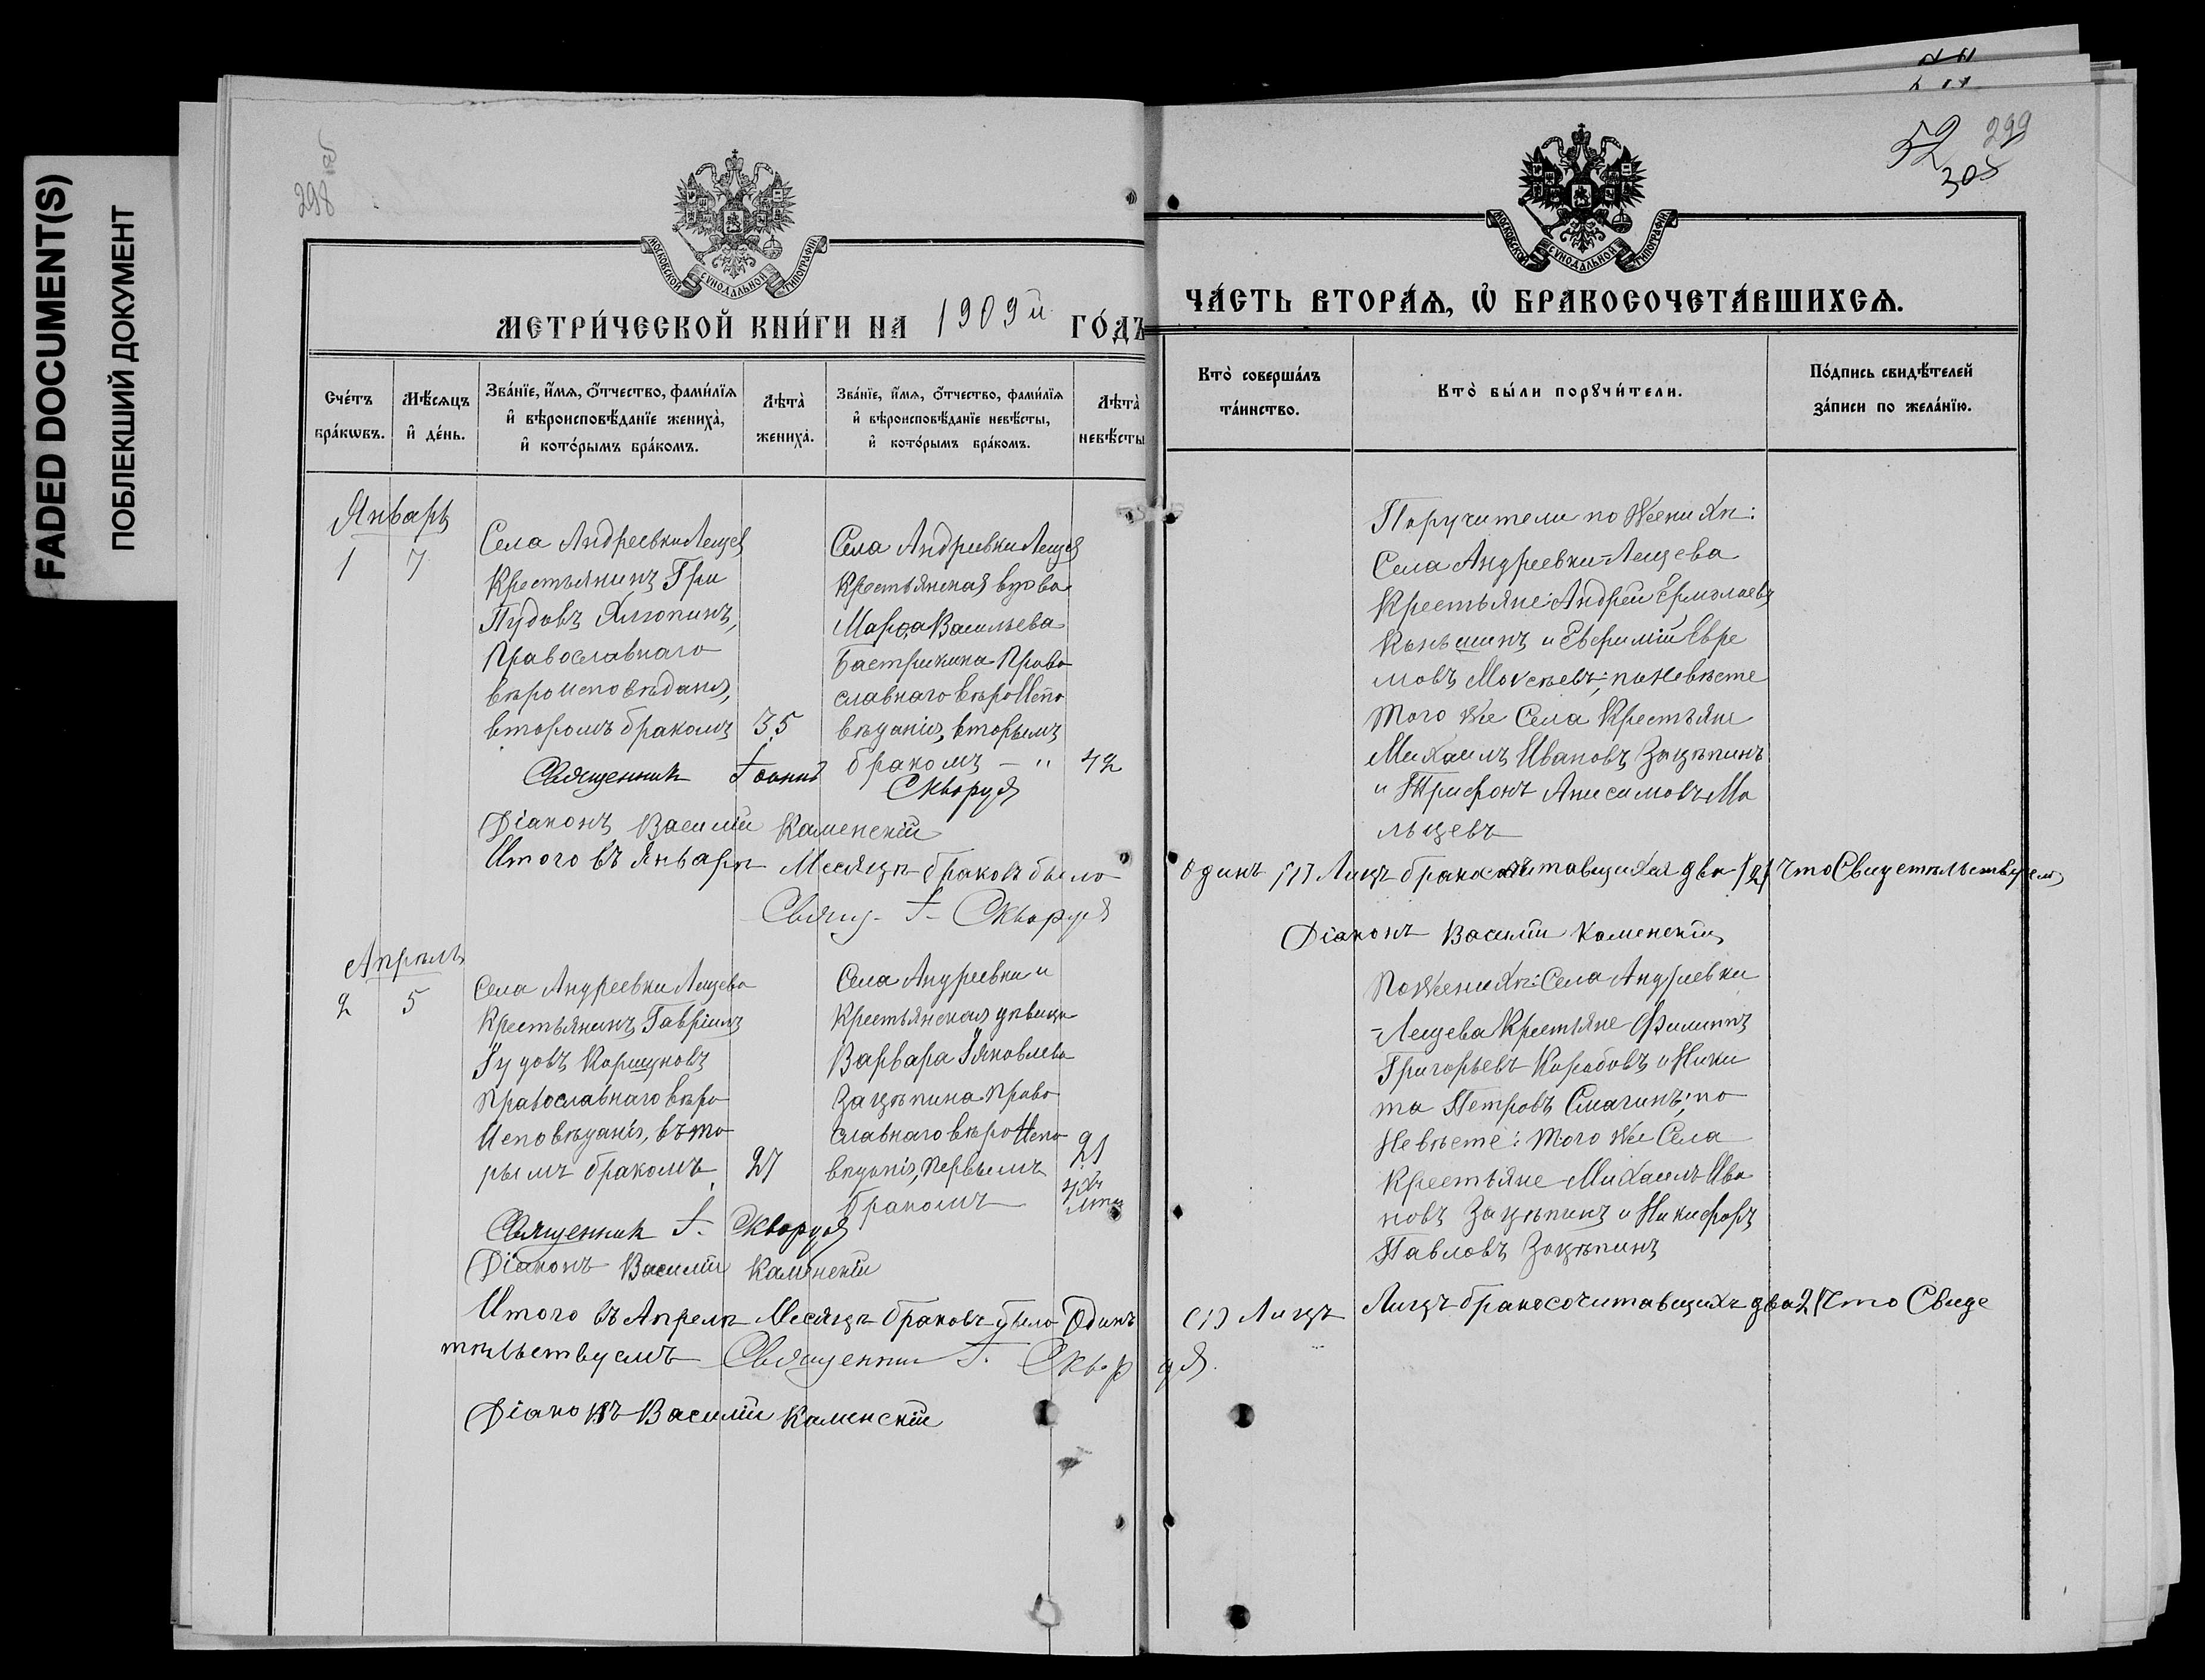 FADED DOCUMENT(S)
ПОБЛЕКШИЙ ДОКУМЕНТ
298
МОСКОВСКОЙ СѴНОДАЛЬНОЙ ТИПОГРАФІИ
МЕТРИ́ЧЕСКОЙ КНИ́ГИ НА 1909й ГО́ДЪ
Сче́тъ бра́кѡвъ.
Мѣ́сяцъ и҆ де́нь.
Зва́нїе, и҆́мѧ, ѻ҆́тчество, фами́лїѧ и҆ вѣроисповѣ́данїе жениха̀, и҆ кото́рымъ бра́комъ.
Лѣта̀ жениха̀.
Зва́нїе, и҆́мѧ, ѻ҆́тчество, фами́лїѧ и҆ вѣроисповѣ́данїе невѣ́сты, и҆ кото́рымъ бра́комъ.
Лѣта̀ невѣ́сты
Январь
1 7
Села Андреевки Лещев
Крестьянинъ Гри
Пудовъ Хлюпинъ,
Православнаго
вѣроисповѣданія,
вторымъ бракомъ 35
Села Андреевки Лещев
Крестьянская вдова
Марѳа Васильева
Бастрикина Право
славнаго вѣроИспо
вѣданія, вторымъ
бракомъ — " 42
Священник Іоаннъ Скворцов
Діаконъ Василій Каменскій
Итого въ Январѣ Месяцѣ браковъ было
Свящ. І. Скворцов
Апрѣль
2 5
Села Андреевки Лещева
Крестьянинъ Гавріилъ
Гудовъ Коршуновъ
Православнаго вѣро
Исповѣданія, вто
рымъ бракомъ 27
Села Андреевки и
Крестьянская дѣвица
Варвара Яковлева
Зацѣпина Право
славнаго вѣроИспо
вѣданія, первымъ
бракомъ
21
Священник І. Скворцов
Діаконъ Василій Каменскій
Итого въ Апрелѣ Месяцѣ браковъ было Одинъ
тѣльствуемъ Священник І. Сквор
Діаконъ Василій Каменскій
52 299
305
МОСКОВСКОЙ СѴНОДАЛЬНОЙ ТИПОГРАФІИ
ЧА́СТЬ ВТОРА́Ѧ, Ѡ҆ БРАКОСОЧЕТА́ВШИХСѦ.
Кто̀ соверша́лъ та́инство.
Кто̀ бы́ли порꙋчи́тели.
По́дпись свидѣ́телей за́писи по жела́нїю.
Поручители по Женихѣ:
Села Андреевки-Лещева
Крестьяне: Андрей Ермолаевъ
Коньшинъ и Ефимій Ефре
мовъ Мокѣевъ; по Невѣсте
Того же Села Крестьяне
Михаилъ Ивановъ Зацѣпинъ
и Трифонъ Анисимовъ Ма
льцевъ
Одинъ (1) Лицъ бракосочитавшихся два (2) Что Свидетѣльствуемъ
Діаконъ Василій Каменскій
По Женихѣ: Села Андреевки
-Лещева Крестьяне Филиппъ
Григорьевъ Коробовъ и Ники
та Петровъ Смагинъ; по
Невѣсте: Того же Села
Крестьяне Михаилъ Ива
новъ Зацѣпинъ и Никифоръ
Павловъ Зацѣпинъ
(1) Лицъ Лицъ бракосочитавшихъ два 2 (Что Свиде
цов.